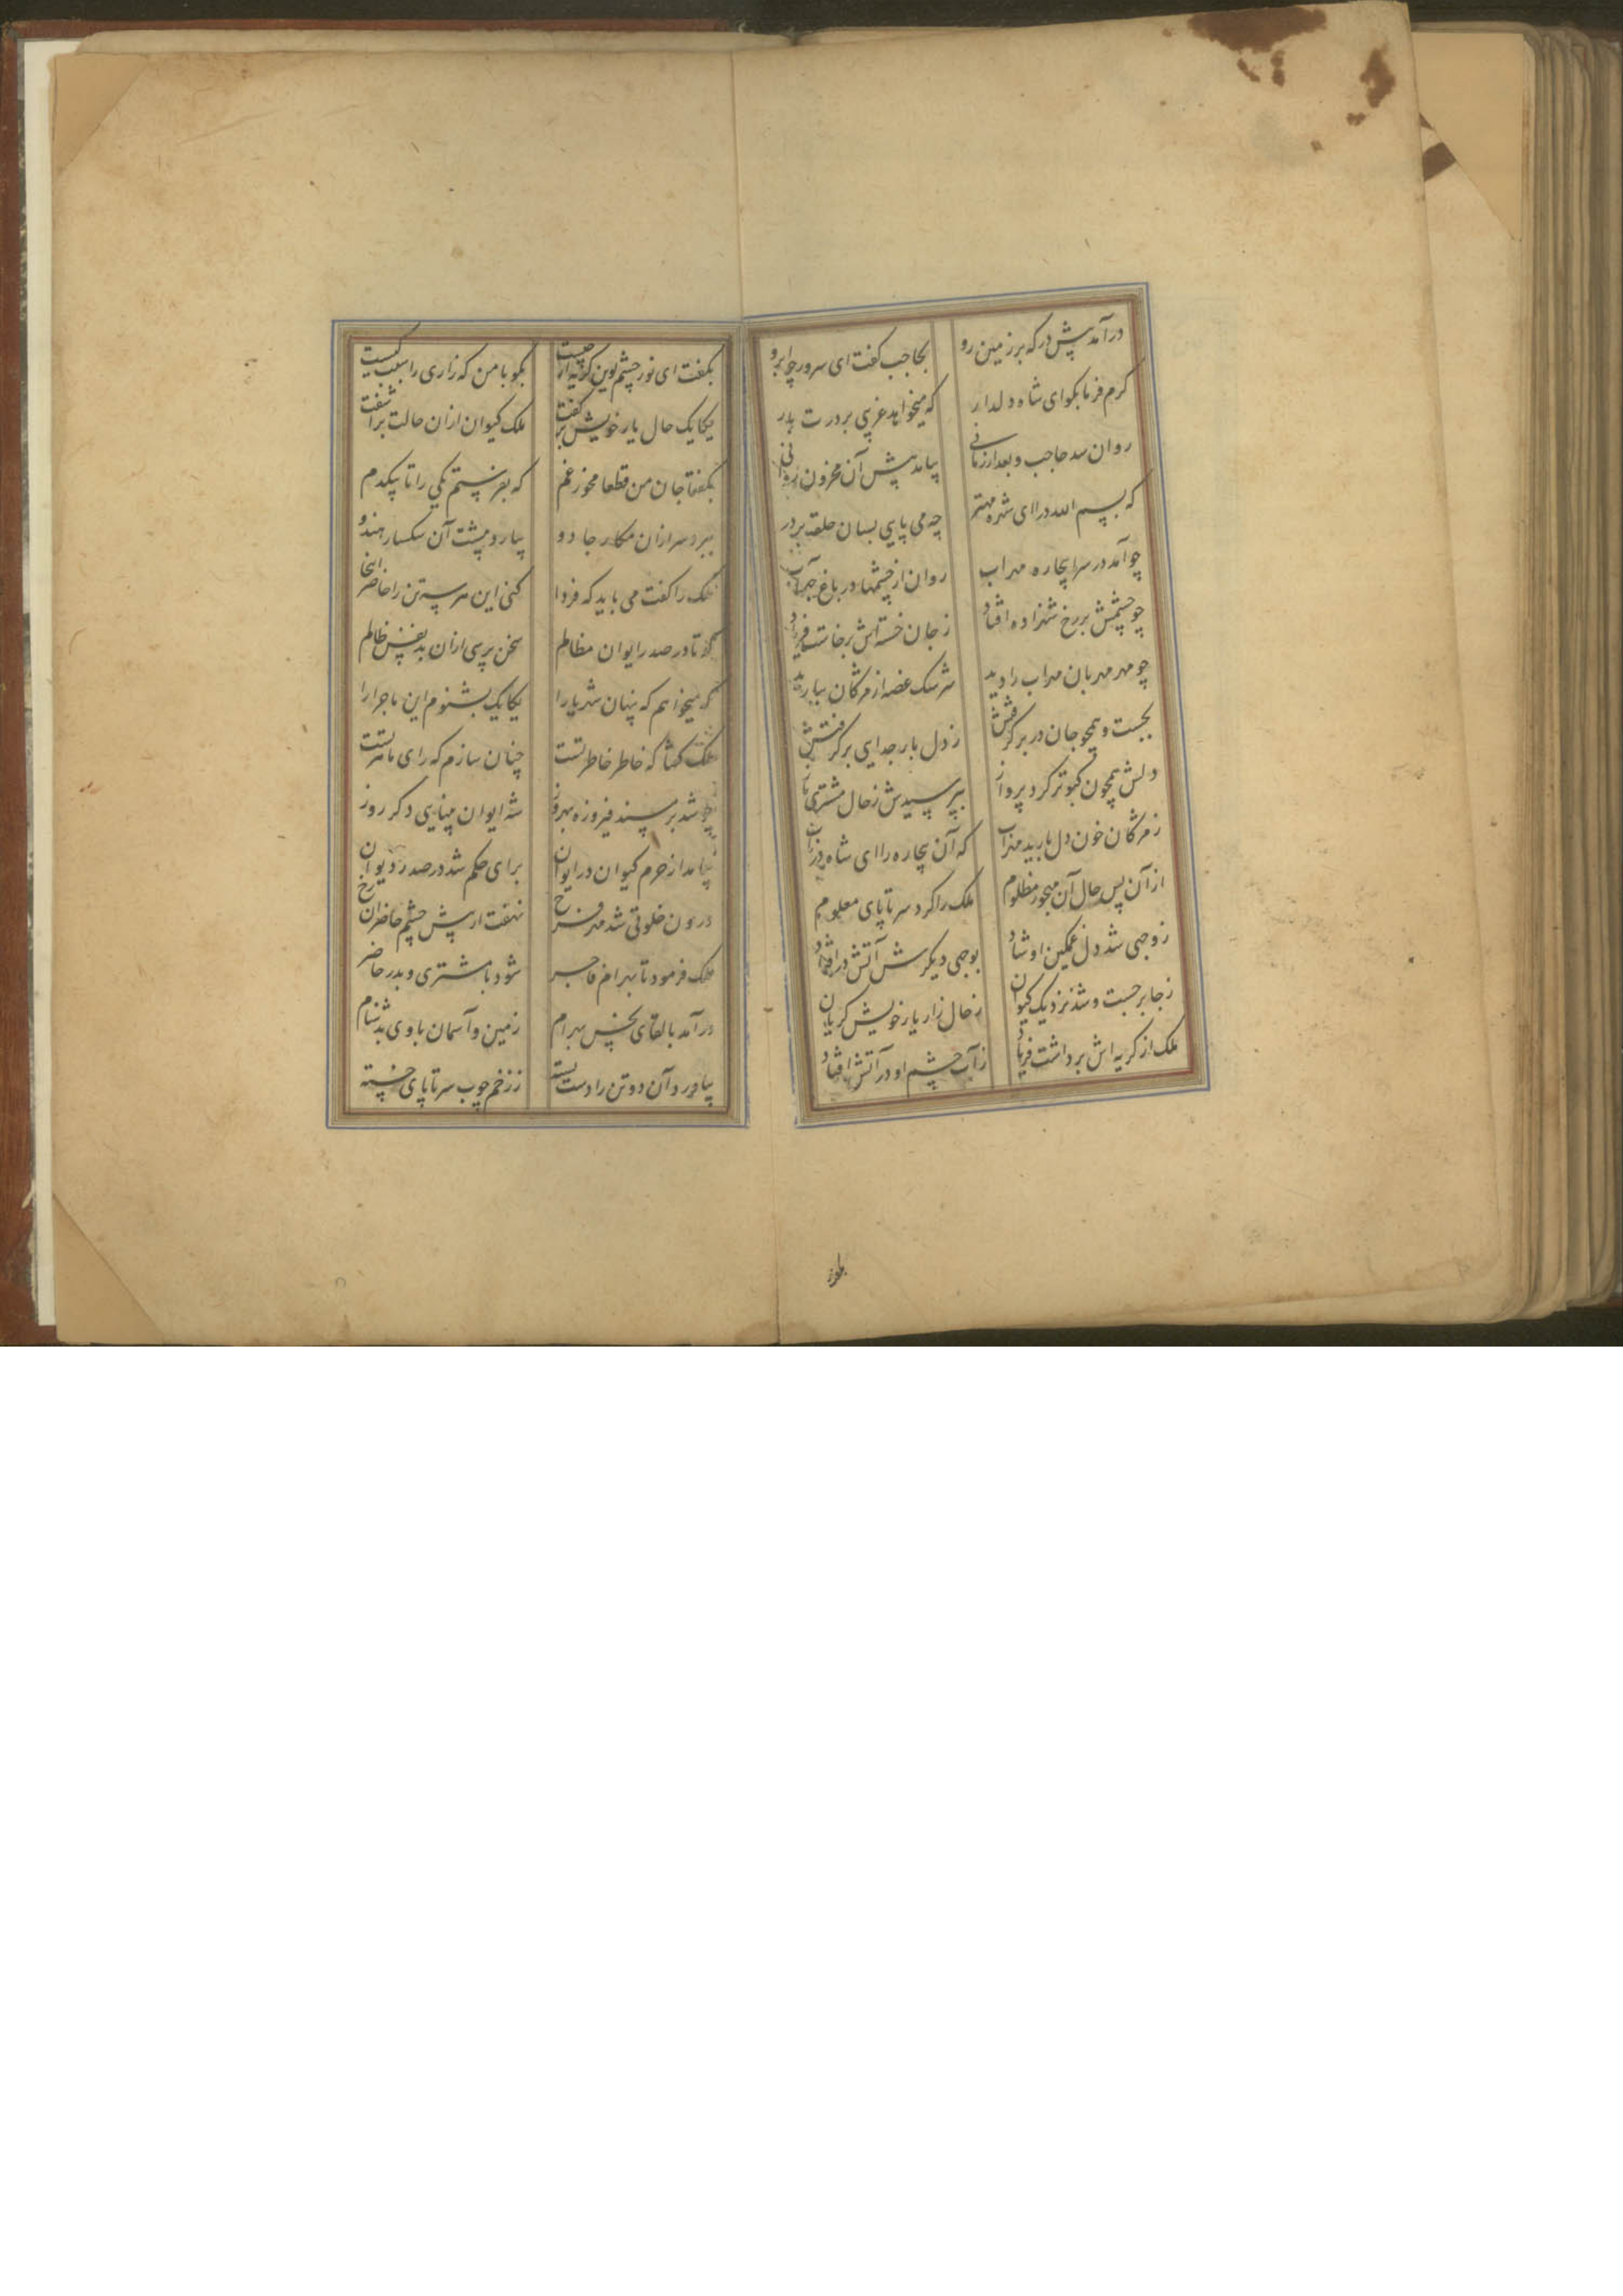 درآمد پیش درکه بر زمین رو بحاجب کفت ای سرور چو ابرو
کرم فرما بکو ای شاه دلدار که میخواهد غریبی بر درت بار
روان شد حاجب و بعد از زمانی بیامد پیش آن محزون روانی
که بسم الله درا ای شهره مهتر چه می پایی بسان حلقه بر در
چو آمد در سرا بیچاره مهراب روان از چشمها در باغ چهر آب
چو چشمش بر رخ شهزاده افتاد ز جان خسته اش برخاست فریاد
چو مهر مهربان مهراب را دید سرشک غصه از مژکان ببارید
بجست و همچو جان در بر کرفتش ز دل بار جدایی بر کرفتش
دلش همچون کبوتر کرد پرواز بپرسیدش ز حال مشتری باز
ز مژکان خون دل بارید مهراب که آن بیچاره را ای شاه دریاب
از آن پس حال آن مهجور مظلوم ملک را کرد سر تا پای معلوم
ز وجهی شد دل غمکین او شاد بوجهی دیکرش آتش در افتاد
ز جا برجست و شد نزدیک کیوان ز حال زار یار خویش کریان
ملک از کریه اش برداشت فریاد ز آب چشم او در آتش افتاد
بکفت ای نور چشم این کریه از چیست بکو با من که زاری را سبب کیست
یکایک حال یار خویش بر کفت ملک کیوان از آن حالت برآشفت
بکفتا جان من قطعا مخور غم که بفرستم یکی را تا بیکدم
ببرد سر از آن مکار جادو بیارد پشت آن سکسار هندو
ملک را کفت می باید که فردا کنی این هر سه تن را حاضر اینجا
که تا در صدر ایوان مظالم سخن پرسی از آن بدنفس ظالم
که میخواهم که پنهان شهریارا یکایک بشنوم این ماجرا را
ملک کفتا که خاطر خاطر تست چنان سازم که رای ماهر تست
چو شد بر مسند فیروزه بهروز شه ایوان مینایی دکر روز
بیامد از حرم کیوان در ایوان برای حکم شد در صدر دیوان
درون خلوتی شد مهر فرخ نهفت از پیش چشم حاضران رخ
ملک فرمود تا بهرام فاجر شود با مشتری و بدر حاضر
درآمد با لقای نحس بهرام زمین و آسمان با وی بدشنام
بیاورد آن دو تن را دست بسته ز زخم چوب سر تا پای خسته